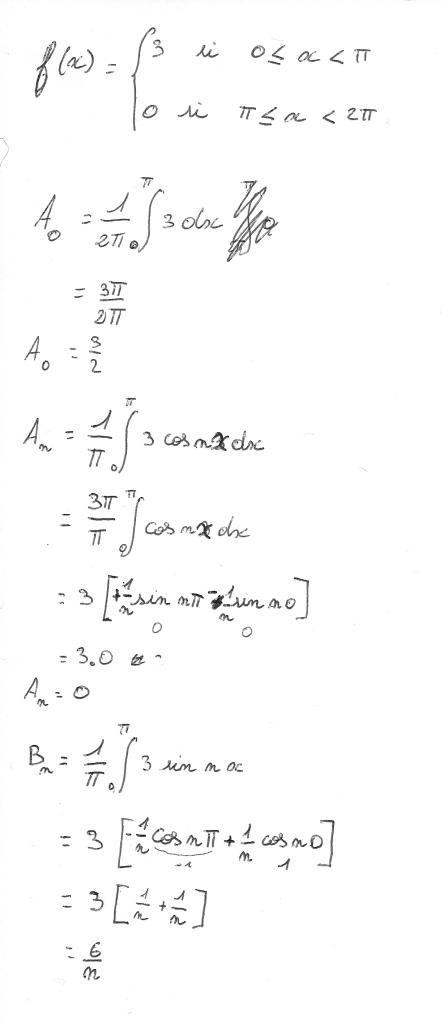 f(x) = { 3 si 0 ≤ x < π
0 si π ≤ x < 2π
A₀ = 1/2π ₀∫^π 3 dx
= 3π/2π
A₀ = 3/2
Aₙ = 1/π ₀∫^π 3 cos nx dx
= 3π/π ₀∫^π cos nx dx
= 3 [+1/n sin nπ - 1/n sin n0]
0 0
= 3.0
Aₙ = 0
Bₙ = 1/π ₀∫^π 3 sin n x
= 3 [-1/n cos nπ + 1/n cos n0]
-1 1
= 3 [1/n + 1/n]
= 6/n